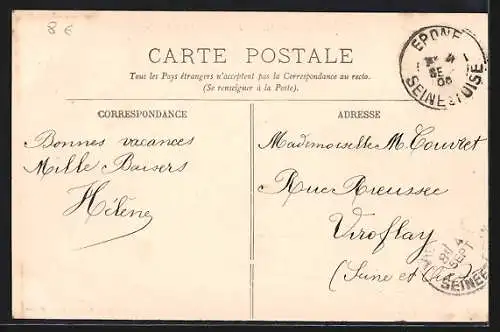 8 €
CARTE POSTALE
Tous les Pays étrangers n'acceptent pas la Correspondance au recto.
(Se renseigner à la Poste).
EPONE
4
SE
06
SEINE ET OISE
CORRESPONDANCE
ADRESSE
Bonnes vacances
Mille Baisers
Hélène
Mademoiselle M. Couvret
Rue Rieussec
Viroflay
(Seine et Oise)
4
SEPT
SEINE